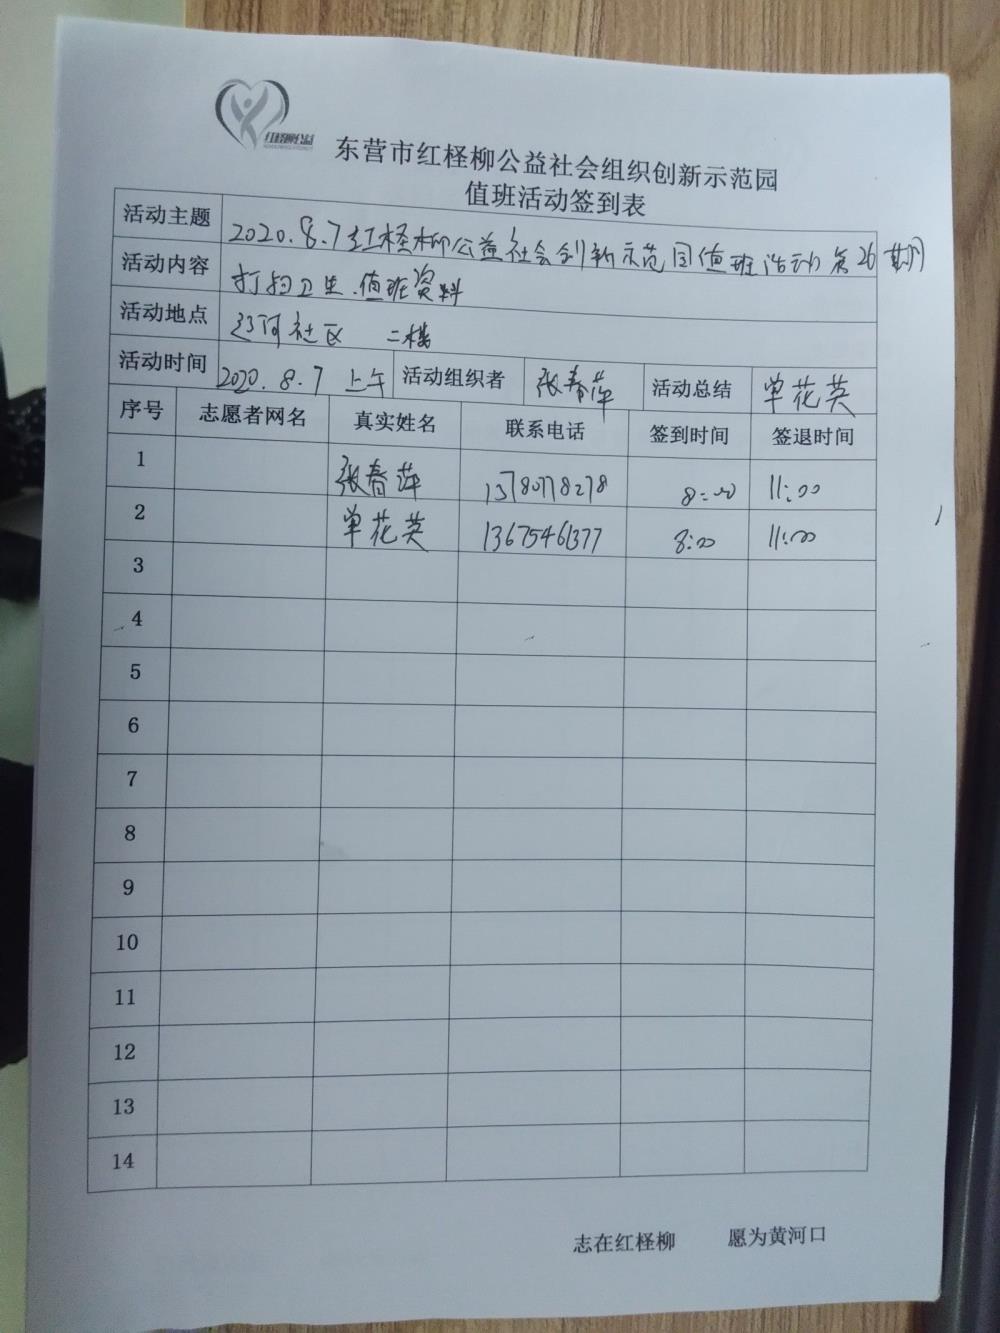 红柽柳公益
东营市红柽柳公益社会组织创新示范园
值班活动签到表
活动主题 2020.8.7红柽柳公益社会创新示范园值班活动第26期
活动内容 打扫卫生.值班资料
活动地点 辽河社区 二楼
活动时间 2020.8.7 上午 活动组织者 张春萍 活动总结 单花英
序号 志愿者网名 真实姓名 联系电话 签到时间 签退时间
1 张春萍 13780778278 8:00 11:00
2 单花英 13675461377 8:00 11:00
3
4
5
6
7
8
9
10
11
12
13
14
志在红柽柳 愿为黄河口